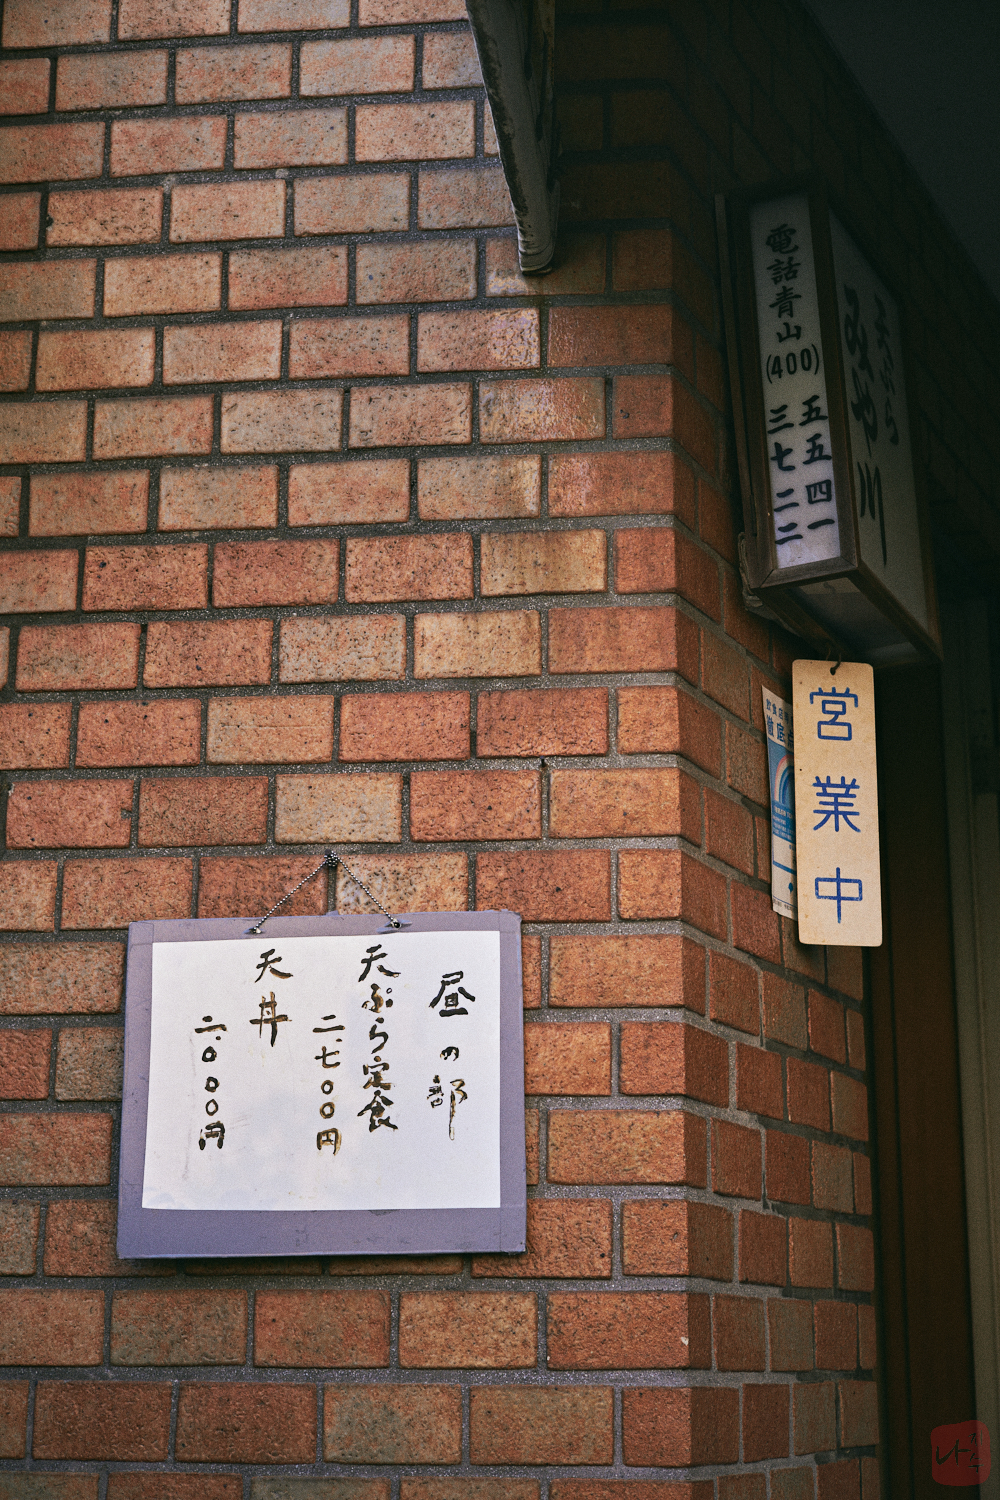 電話青山
(400)
五五四一
三七二二
天ぷら
みや川
営業中
昼の部
天ぷら定食
二.七〇〇円
天丼
二.〇〇〇円